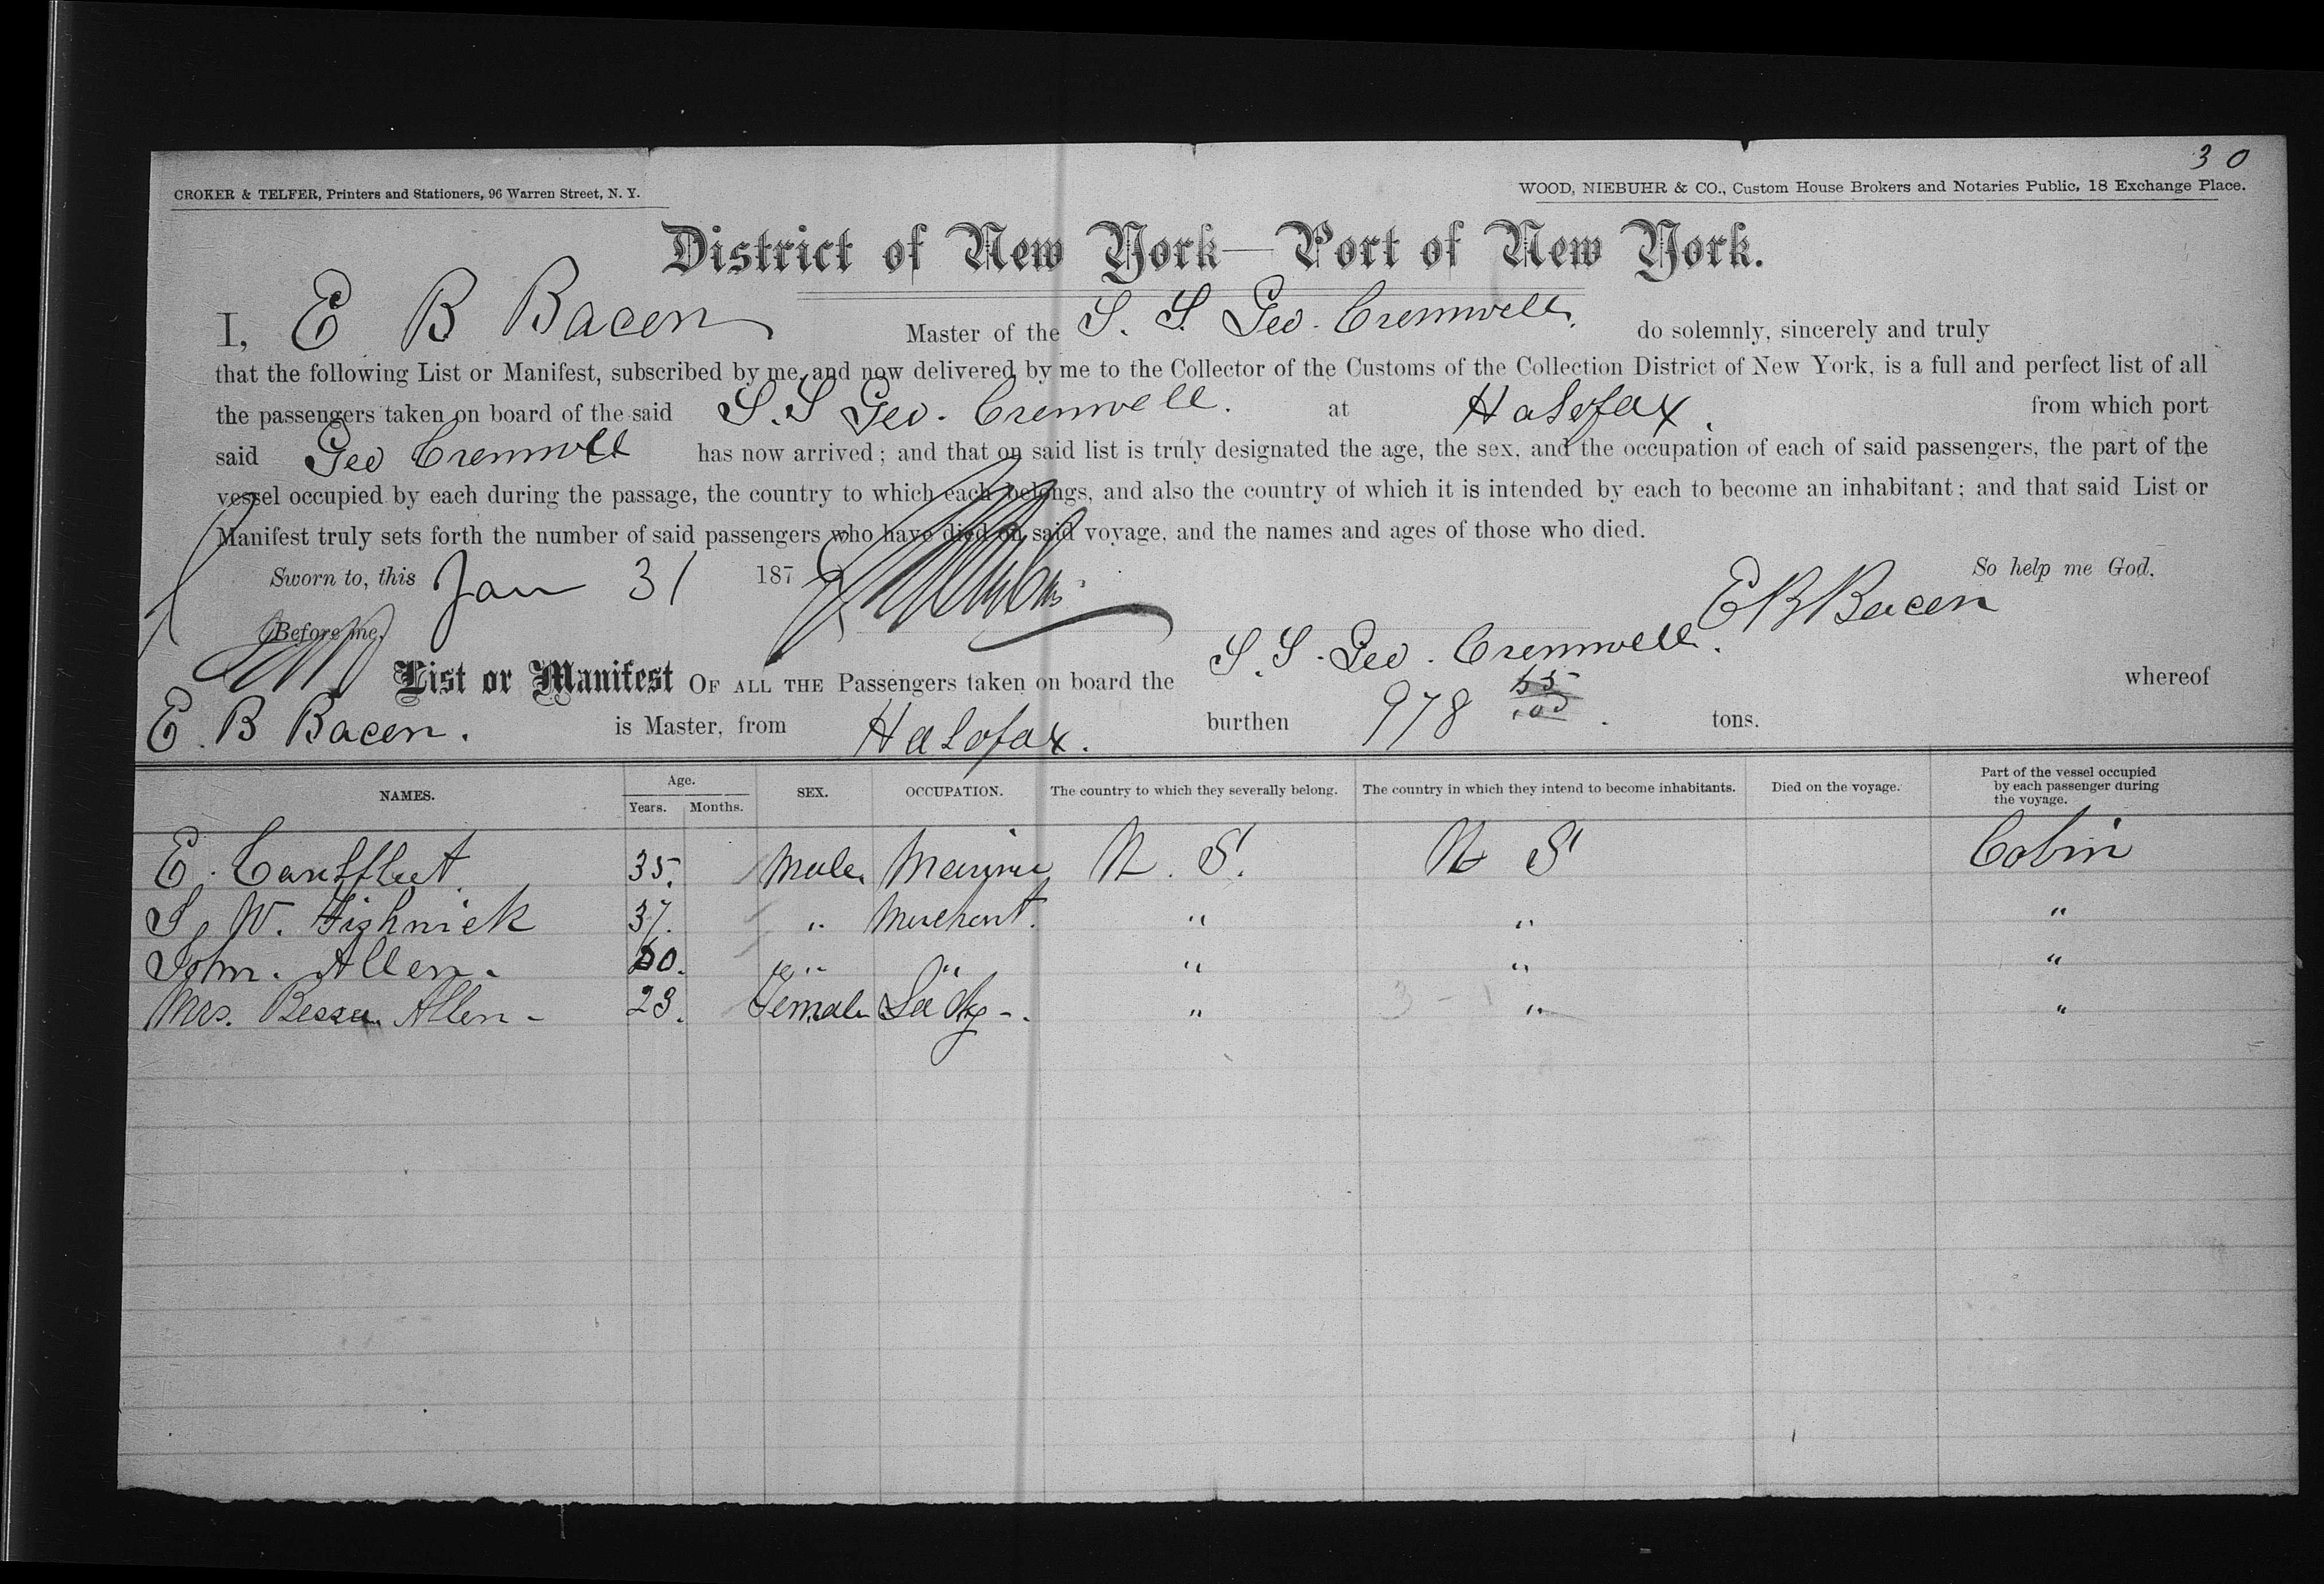 30
CROKER & TELFER, Printers and Stationers, 96 Warren Street, N. Y.
WOOD, NIEBUHR & CO., Custom House Brokers and Notaries Public, 18 Exchange Place.
District of New York—Port of New York.
I, E B Bacon Master of the S. S. Geo. Cromwell. do solemnly, sincerely and truly
that the following List or Manifest, subscribed by me, and now delivered by me to the Collector of the Customs of the Collection District of New York, is a full and perfect list of all
the passengers taken on board of the said S. S Geo. Cromwell. at Halifax. from which port
said Geo Cromwell has now arrived; and that on said list is truly designated the age, the sex, and the occupation of each of said passengers, the part of the
vessel occupied by each during the passage, the country to which each belongs, and also the country of which it is intended by each to become an inhabitant; and that said List or
Manifest truly sets forth the number of said passengers who have died on said voyage, and the names and ages of those who died.
Sworn to, this Jan 31 187 So help me God.
Before me, E B Bacon
List or Manifest OF ALL THE Passengers taken on board the S. S. Geo. Cromwell. whereof
E. B Bacon. is Master, from Halifax. burthen 978 55/100. tons.
NAMES. Age. Years. Months. SEX. OCCUPATION. The country to which they severally belong. The country in which they intend to become inhabitants. Died on the voyage. Part of the vessel occupied by each passenger during the voyage.
E. 35. Male. N. S. N S Cabin
S. W. 37. " Merchant. " " "
John. Allen. " " " " "
Mrs. Allen - 23. Female Lady -. " " "